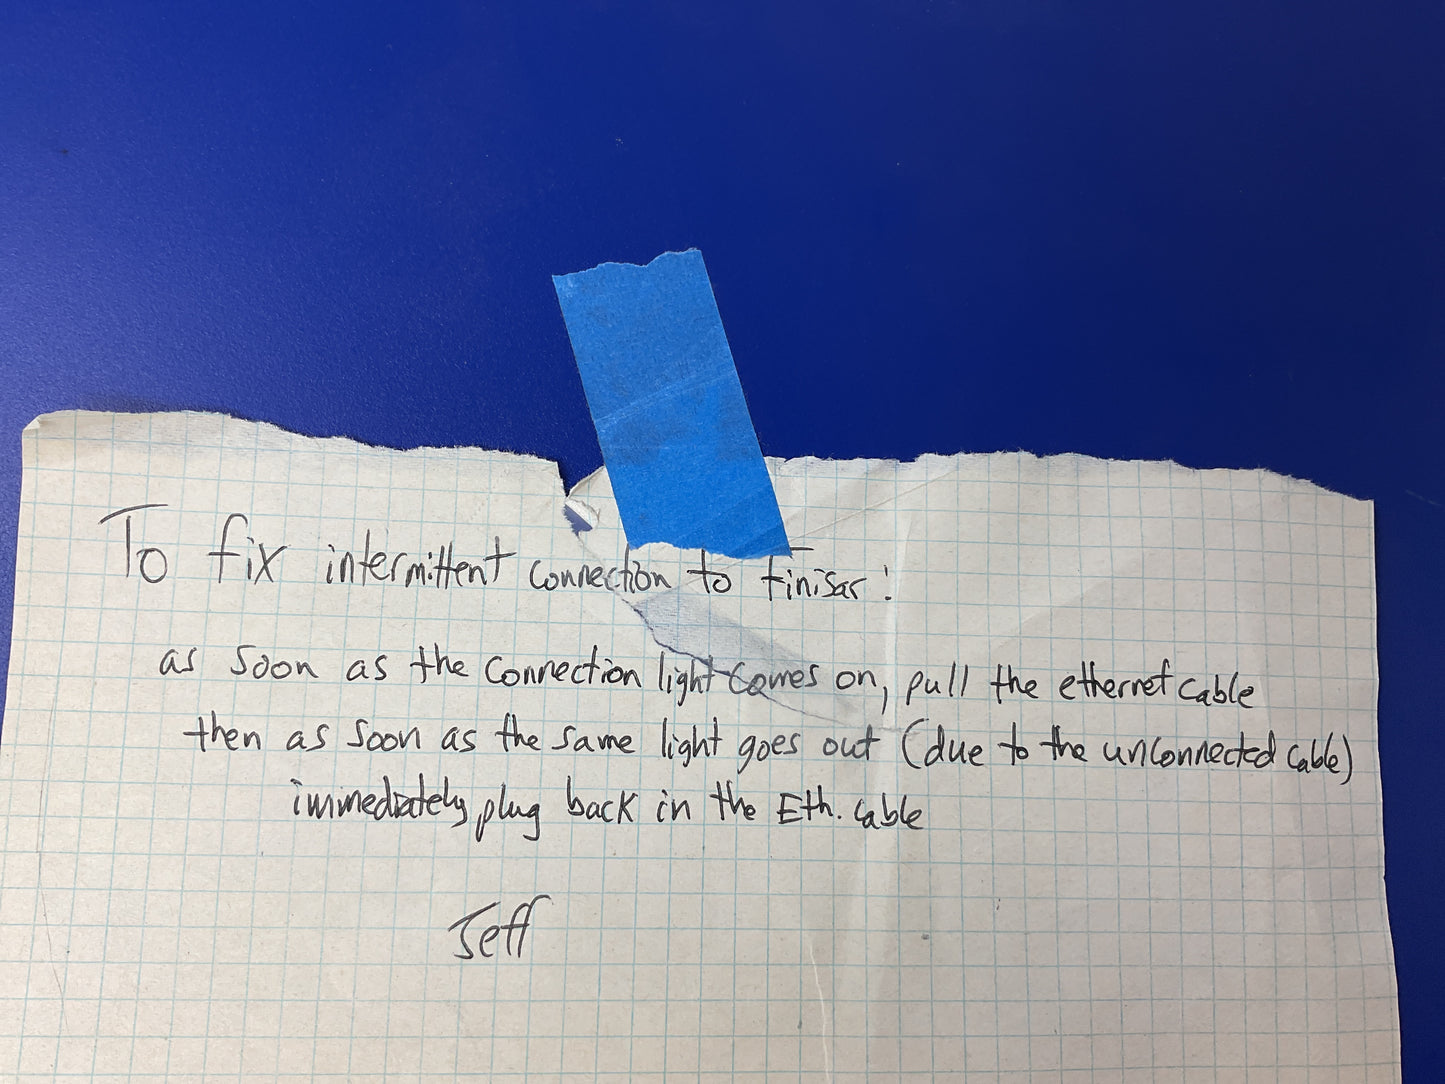 To fix intermittent connection to Finisar:
as soon as the connection light comes on, pull the ethernet cable
then as soon as the same light goes out (due to the unconnected cable)
immediately plug back in the Eth. cable
Jeff